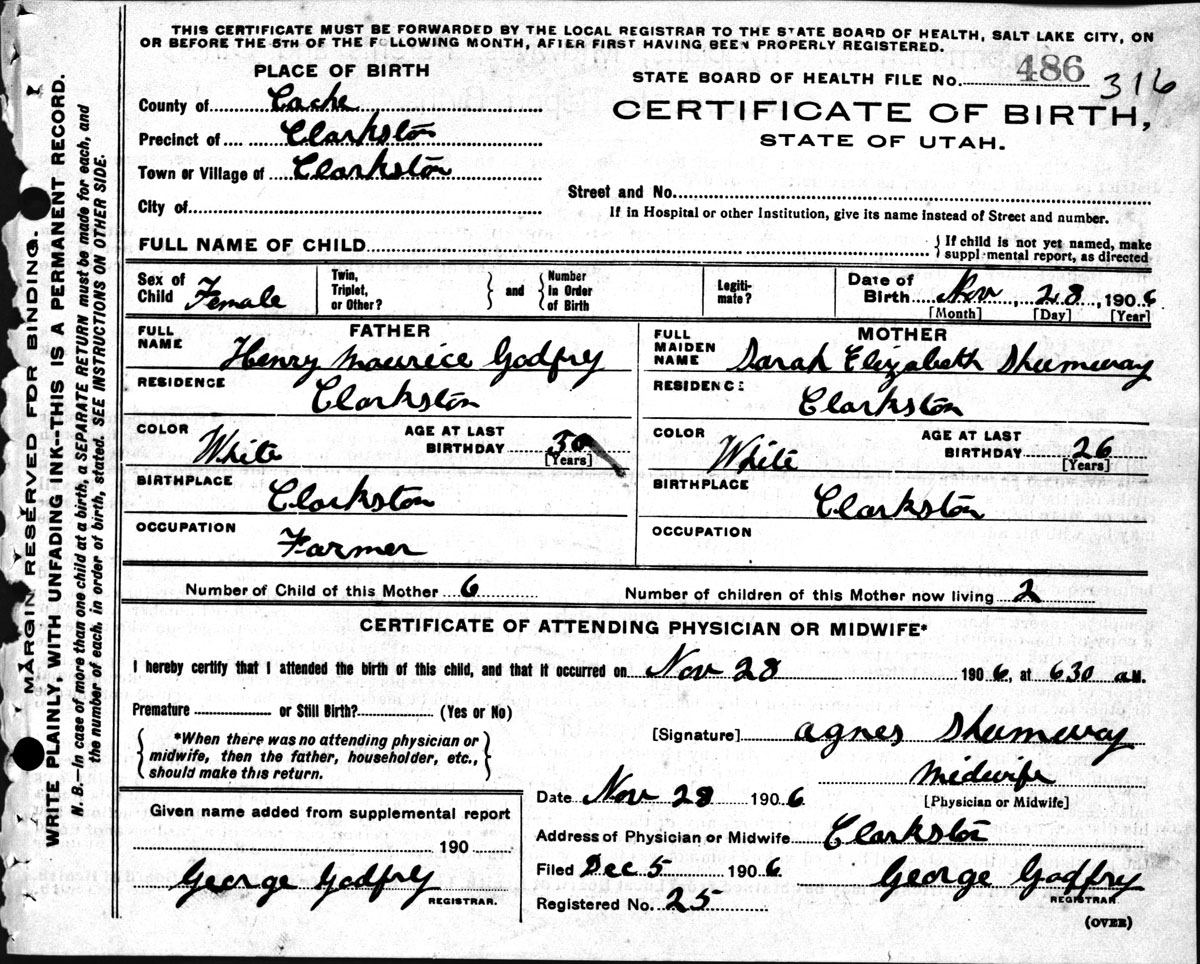 THIS CERTIFICATE MUST BE FORWARDED BY THE LOCAL REGISTRAR TO THE STATE BOARD OF HEALTH, SALT LAKE CITY, ON
OR BEFORE THE 5TH OF THE FOLLOWING MONTH, AFTER FIRST HAVING BEEN PROPERLY REGISTERED.
PLACE OF BIRTH
STATE BOARD OF HEALTH FILE No. 486 316
County of Cache
CERTIFICATE OF BIRTH,
Precinct of Clarkston
STATE OF UTAH.
Town or Village of Clarkston
Street and No.
City of
If in Hospital or other Institution, give its name instead of Street and number.
FULL NAME OF CHILD
{ If child is not yet named, make
supplemental report, as directed
Sex of Child Female
Twin, Triplet, or Other? } and { Number In Order of Birth
Legiti-mate?
Date of Birth Nov, 28, 1906
[Month] [Day] [Year]
FATHER
FULL NAME Henry Maurice Godfry
RESIDENCE
Clarkston
COLOR White AGE AT LAST BIRTHDAY 30
[Years]
BIRTHPLACE
Clarkston
OCCUPATION
Farmer
MOTHER
FULL MAIDEN NAME Sarah Elizabeth Shumway
RESIDENCE
Clarkston
COLOR White AGE AT LAST BIRTHDAY 26
[Years]
BIRTHPLACE
Clarkston
OCCUPATION
Number of Child of this Mother 6 Number of children of this Mother now living 2
CERTIFICATE OF ATTENDING PHYSICIAN OR MIDWIFE*
I hereby certify that I attended the birth of this child, and that it occurred on Nov 28 1906, at 630 a M.
Premature or Still Birth? (Yes or No)
{ *When there was no attending physician or
midwife, then the father, householder, etc.,
should make this return. }
[Signature] Agnes Shumway
Midwife
[Physician or Midwife]
Date Nov 28 1906
Address of Physician or Midwife Clarkston
Filed Dec 5 1906 George Godfry
REGISTRAR.
Registered No. 25
(OVER)
Given name added from supplemental report
190
George Godfry
REGISTRAR.
MARGIN RESERVED FOR BINDING.
WRITE PLAINLY, WITH UNFADING INK--THIS IS A PERMANENT RECORD.
N. B.—In case of more than one child at a birth, a SEPARATE RETURN must be made for each, and
the number of each, in order of birth, stated. SEE INSTRUCTIONS ON OTHER SIDE.